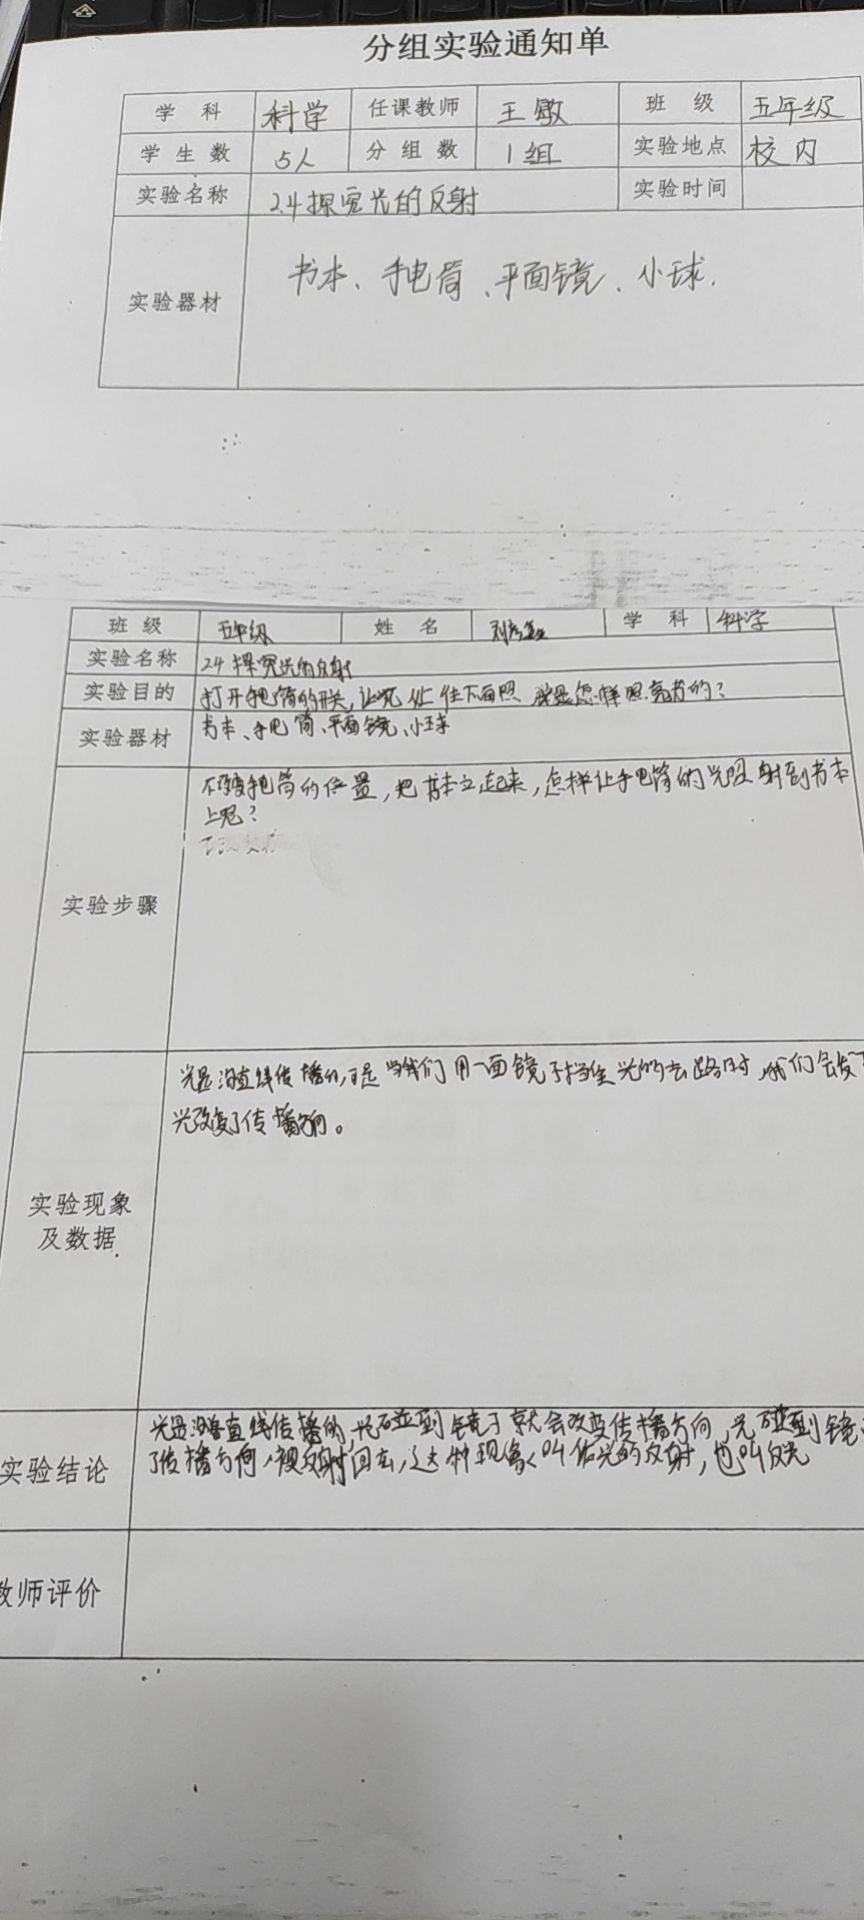 分组实验通知单
学科 科学 任课教师 王敏 班级 五年级
学生数 5人 分组数 1组 实验地点 校内
实验名称 2.4探究光的反射 实验时间
实验器材 书本、手电筒、平面镜、小球.
班级 五年级 姓名 学科 科学
实验名称 2.4探究光的反射
实验目的 打开手电筒的开关,让光 往下面照 怎样照亮书的?
实验器材 书本、手电筒、平面镜、小球
不改变手电筒的位置,把书本立起来,怎样让手电筒的光照射到书本
上呢?
实验步骤
光是沿直线传播的,可是当我们用一面镜子挡住光的去路时,我们会发
光改变了传播方向。
实验现象
及数据
光是沿着直线传播的,光碰到镜子就会改变传播方向,光碰到镜
了传播方向,被反射回去,这种现象叫做光的反射,也叫反光
实验结论
教师评价